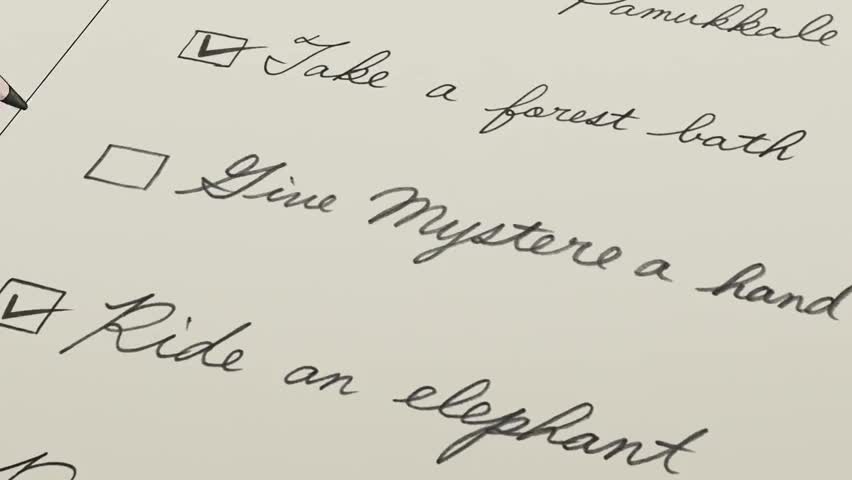 Pamukkale
Take a forest bath
Give Mystere a hand
Ride an elephant